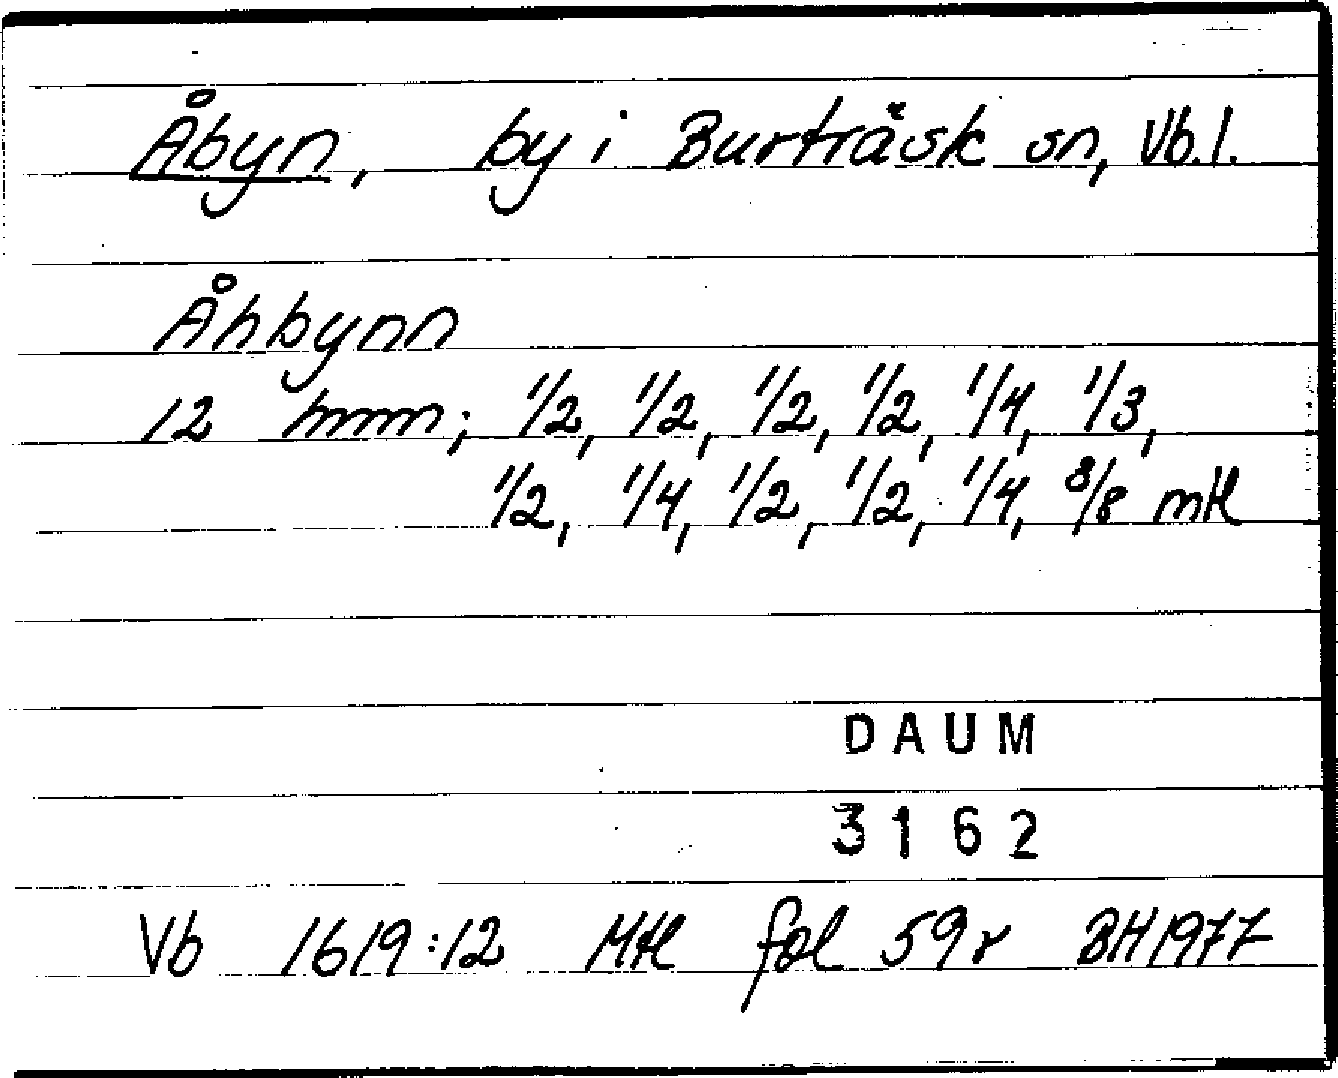 Åbyn, by i Burträsk sn, Vb.l.
Åhbynn
12 hmm; 1/2, 1/2, 1/2, 1/2, 1/4, 1/3,
1/2, 1/4, 1/2, 1/2, 1/4, 3/8 mtl
DAUM
3162
Vb 1619:12 Mtl fol 59r BH1977